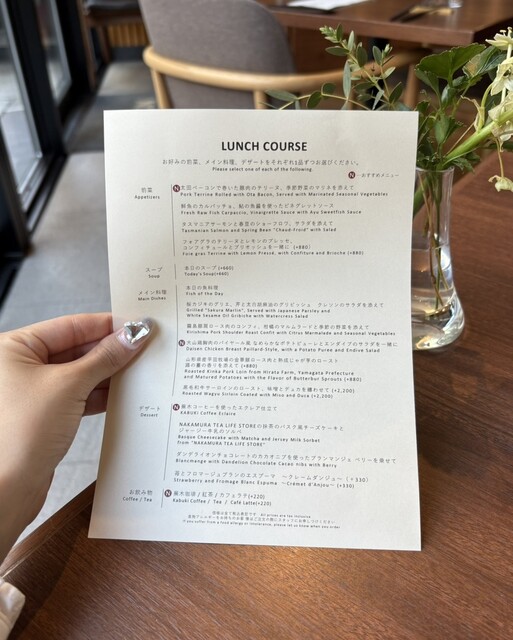 LUNCH COURSE
お好みの前菜、メイン料理、デザートをそれぞれ1品ずつお選びください。
Please select one of each of the following.
N …おすすめメニュー
前菜
Appetizers
N 太田ベーコンで巻いた豚肉のテリーヌ、季節野菜のマリネを添えて
Pork Terrine Rolled with Ota Bacon, Served with Marinated Seasonal Vegetables
鮮魚のカルパッチョ、鮎の魚醤を使ったビネグレットソース
Fresh Raw Fish Carpaccio, Vinaigrette Sauce with Ayu Sweetfish Sauce
タスマニアサーモンと春豆のショーフロワ、サラダを添えて
Tasmanian Salmon and Spring Bean "Chaud-froid" with Salad
フォアグラのテリーヌとレモンのプレッセ、
コンフィチュールとブリオッシュを一緒に (+880)
Foie gras Terrine with Lemon Pressé, with Confiture and Brioche (+880)
スープ
Soup
本日のスープ(+660)
Today's Soup(+660)
メイン料理
Main Dishes
本日の魚料理
Fish of the Day
桜カジキのグリエ、芹と太白胡麻油のグリビッシュ クレソンのサラダを添えて
Grilled "Sakura Marlin", Served with Japanese Parsley and
White Sesame Oil Gribiche with Watercress Salad
霧島豚肩ロース肉のコンフィ、柑橘のマルムラードと季節の野菜を添えて
Kirishima Pork Shoulder Roast Confit with Citrus Marmalade and Seasonal Vegetables
N 大山鶏胸肉のパイヤール風 なめらかなポテトピューレとエンダイブのサラダを一緒に
Daisen Chicken Breast Paillard-Style, with a Potato Purée and Endive Salad
山形県産平田牧場の金華豚ロース肉と熟成じゃが芋のロースト
蕗の薹の香りを添えて (+880)
Roasted Kinka Pork Loin from Hirata Farm, Yamagata Prefecture
and Matured Potatoes with the Flavor of Butterbur Sprouts (+880)
黒毛和牛サーロインのロースト、味噌とデュカを纏わせて (+2,200)
Roasted Wagyu Sirloin Coated with Miso and Duca (+2,200)
デザート
Dessert
N 蕪木コーヒーを使ったエクレア仕立て
KABUKI Coffee Eclaire
NAKAMURA TEA LIFE STOREの抹茶のバスク風チーズケーキと
ジャージー牛乳のソルベ
Basque Cheesecake with Matcha and Jersey Milk Sorbet
from "NAKAMURA TEA LIFE STORE"
ダンデライオンチョコレートのカカオニブを使ったブランマンジェ ベリーを乗せて
Blancmange with Dandelion Chocolate Cacao nibs with Berry
苺とフロマージュブランのエスプーマ 〜クレームダンジュ〜 (+330)
Strawberry and Fromage Blanc Espuma 〜Crémet d'Anjou〜 (+330)
お飲み物
Coffee / Tea
N 蕪木珈琲 / 紅茶 / カフェラテ(+220)
Kabuki Coffee / Tea / Café Latte(+220)
価格は全て税込表記です All prices are tax inclusive.
食物アレルギーをお持ちのお客様はご注文の際にスタッフにお申し付けください
If you suffer from a food allergy or intolerance, please let us know when you order